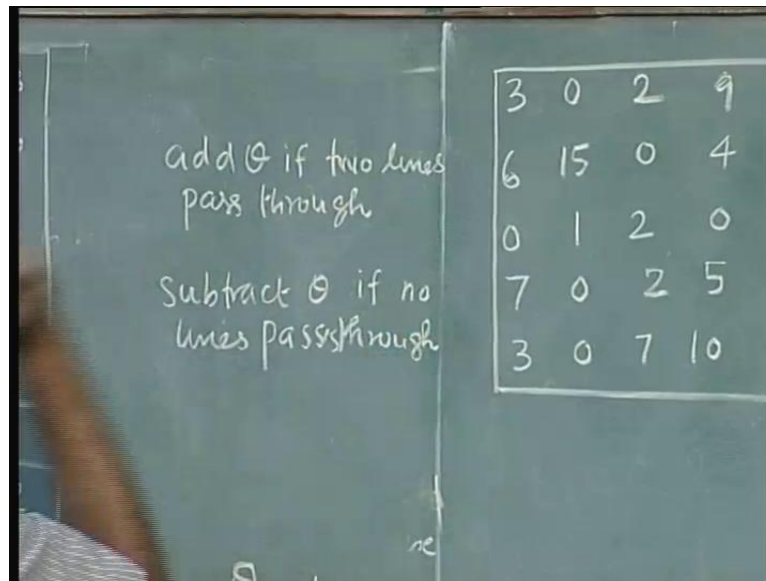 add θ if two lines
pass through
subtract θ if no
lines passsthrough
3 0 2 9
6 15 0 4
0 1 2 0
7 0 2 5
3 0 7 10